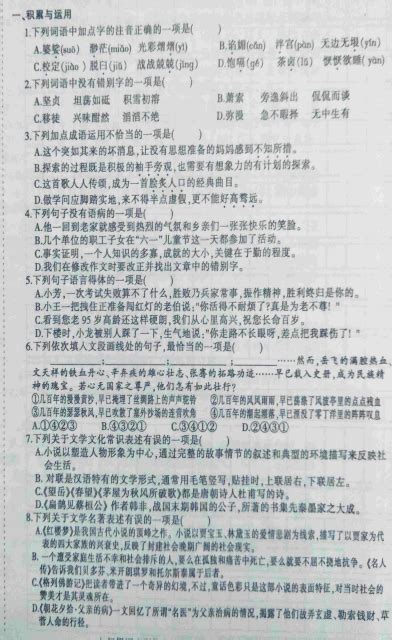 一、积累与运用
1.下列词语中加点字的注音正确的一项是(　　)
A.婆娑(suō) 渺茫(miǎo) 光彩熠熠(yì)
B.谄媚(chǎn) 泮宫(pàn) 无边无垠(yín)
C.校定(jiào) 脱臼(jiù) 战战兢兢(jīng)
D.饱嗝(gé) 茶卤(lǔ) 恹恹欲睡(yàn)
2.下列词语中没有错别字的一项是(　　)
A.坚贞 坦荡如砥 积雪初溶
B.萧索 旁逸斜出 侃侃而谈
C.移徙 兴味酣然 滔滔不绝
D.弥漫 急不暇择 无中生有
3.下列加点成语运用不恰当的一项是(　　)
A.这个突如其来的坏消息,让没有思想准备的妈妈感到不知所措。
B.探索的过程既是积极的袖手旁观,也需要有想象力的有计划的探索。
C.这首歌人人传颂,成为一首脍炙人口的经典曲目。
D.做学问应脚踏实地,来不得半点虚假,更不能好高骛远。
4.下列句子没有语病的一项是(　　)
A.他一回到老家就感受到热烈的气氛和乡亲们一张张快乐的笑脸。
B.几个单位的职工子女在“六一”儿童节这一天都参加了活动。
C.事实证明,一个人知识的多寡,成就的大小,关键在于勤的程度。
D.我们在修改作文时要改正并找出文章中的错别字。
5.下列句子语言得体的一项是(　　)
A.小芳,一次考试失败算不了什么,胜败乃兵家常事,振作精神,胜利终归是你的。
B.小王一把拽住正准备闯红灯的老伯说:“你活得不耐烦了?真是为老不尊!”
C.看到您老 95 岁高龄还这样硬朗,我们从心里高兴,祝您长命百岁。
D.下楼时,小龙被别人踩了一下,生气地说:“你走路不长眼呀,差点把我踩伤了!”
6.下列依次填入文段画线处的句子,最恰当的一项是(　　)
;　　;　　;　　……然而,岳飞的满腔热血、
文天祥的铁血丹心、辛弃疾的雄心壮志、张骞的拓路功迹……早已载入史册,成为民族精
神的瑰宝。若心无国家之尊严,他们怎有如此壮行?
①几百年的漫漫黄沙,早已掩埋了丝绸路上的声声驼铃 ②几百年的风风雨雨,早已荡涤了风波亭里的点点残血
③几百年的瑟瑟秋风,早已吹散了塞外沙场的连营吹角 ④几百年的潮起潮落,早已湮没了零丁洋里的阵阵叹息
A.①④②③ B.④③②① C.③④①② D.②④③①
7.下列关于文学文化常识表述有误的一项是(　　)
A.小说以塑造人物形象为中心,通过完整的故事情节的叙述和典型的环境描写来反映社
会生活。
B. 对联是汉语特有的文学形式,通常用毛笔竖写,贴挂时,上联居右,下联居左。
C.《望岳》《春望》《茅屋为秋风所破歌》都是唐朝诗人杜甫写的诗。
D.《扁鹊见蔡桓公》作者韩非,战国末期韩国的公子,所著的书集先秦墨家之大成。
8.下列关于文学名著表述有误的一项是(　　)
A.《红楼梦》是我国古代小说的顶峰之作。小说以贾宝玉、林黛玉的爱情悲剧为线索,描写了以贾家为代
表的四大家族的兴衰史,反映了封建社会晚期广阔的社会现实。
B. 一个遭受家庭生活不幸和社会排斥的人,要么在孤独和痛苦中死亡,要么就要不屈不挠地抗争。《名人
传》告诉我们贝多芬、米开朗琪罗和托尔斯泰属于后者。
C.《格列佛游记》把读者带进了一个奇异的幻境,不过,童话色彩只是这部小说的表面特征,对当时社会的
赞美才是其灵魂所在。
D.《朝花夕拾·父亲的病》一文回忆了所谓“名医”为父亲治病的情况,揭露了他们故弄玄虚、勒索钱财、草
菅人命的行径。